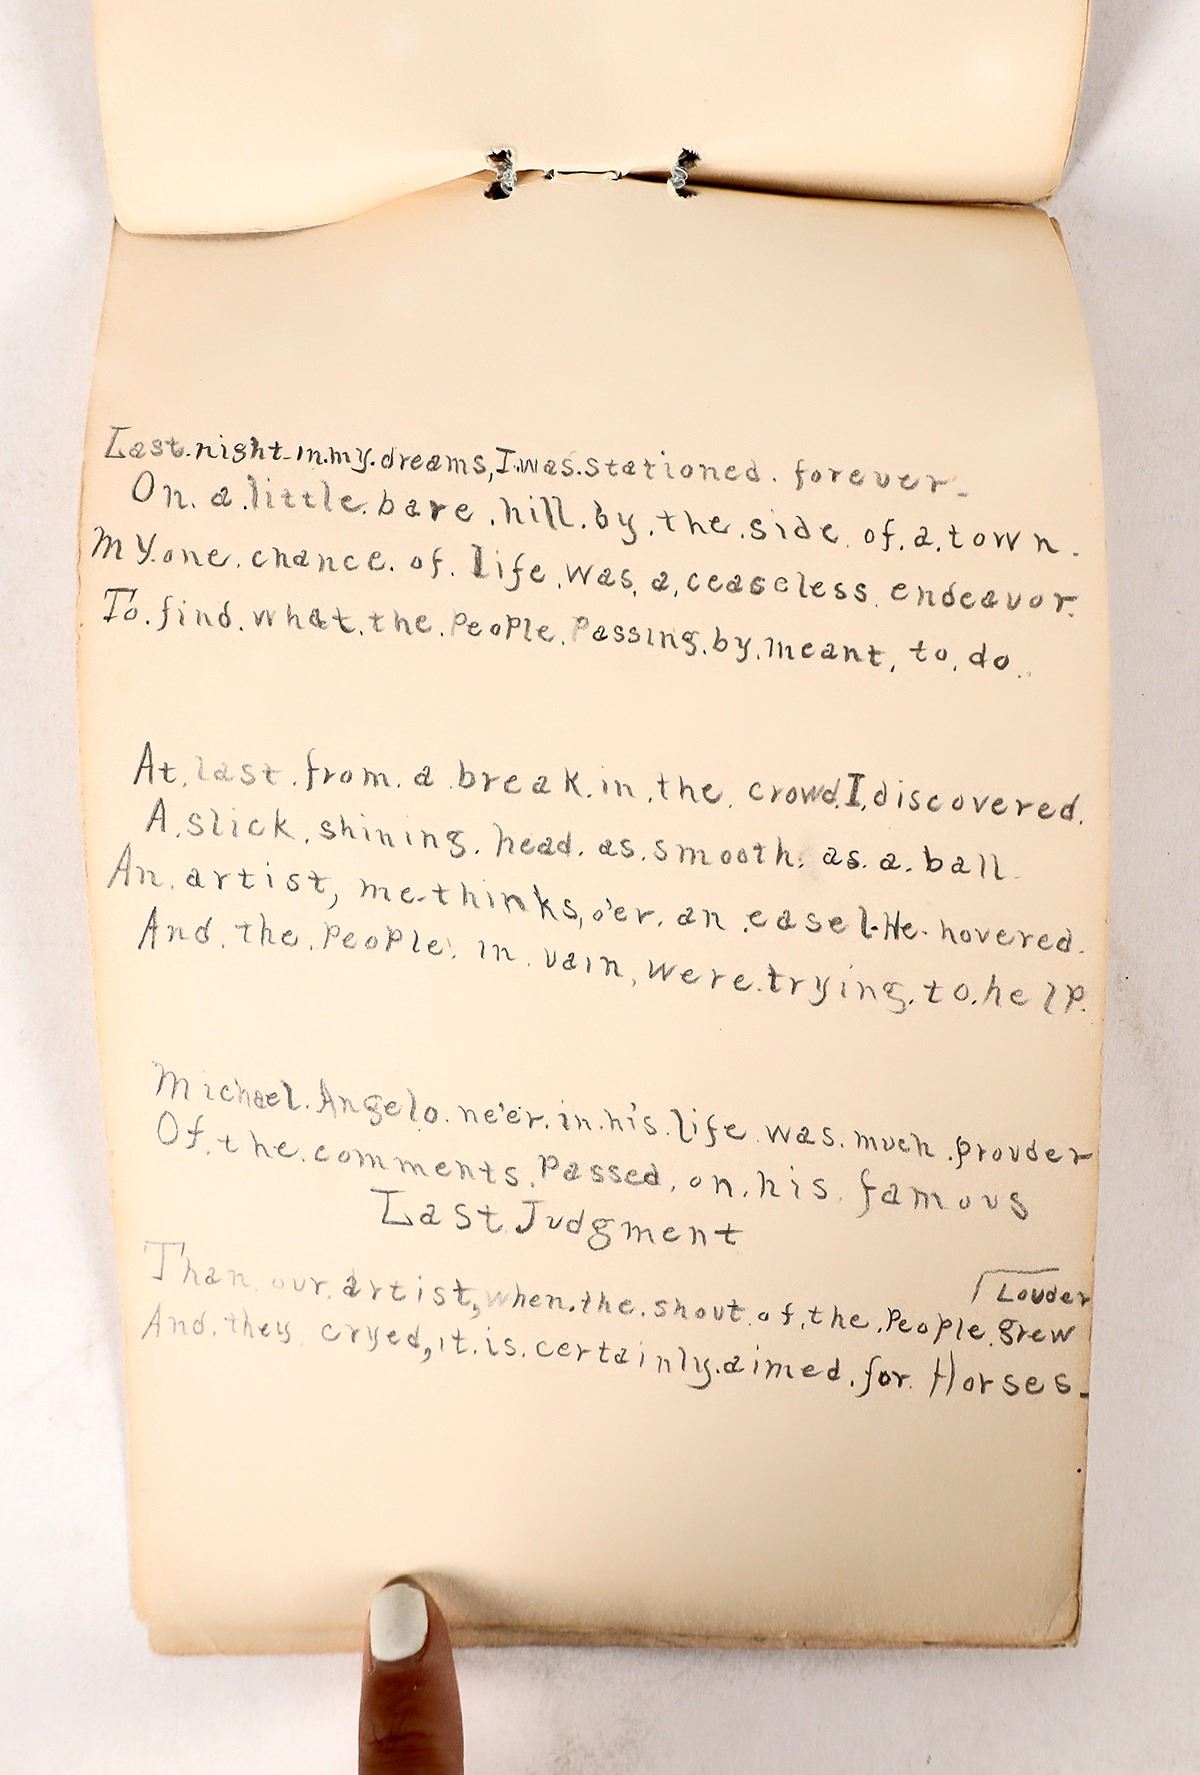 Last.night.in.my.dreams,I.was.stationed. forever.
On. a.little.bare.hill.by.the.side.of.a.town.
My.one.chance.of.life.was.a.ceaseless.endeavor.
To.find.what.the.People.Passing.by.meant.to.do..
At.last.from.a break.in.the.crowd.I.discovered.
A.slick.shining.head.as.smooth.as.a.ball.
An.artist, me-thinks,o'er.an.easel.He.hovered.
And.the.People.in.vain,were.trying.to.help.
Michael.Angelo.ne'er.in.his.life.was.much.prouder
Of.the.comments.Passed.on.his.famous
Last.Judgment
Louder
Than.our.artist,when.the.shout.of.the.People.grew
And.they cryed,it.is.certainly.aimed.for.Horses.